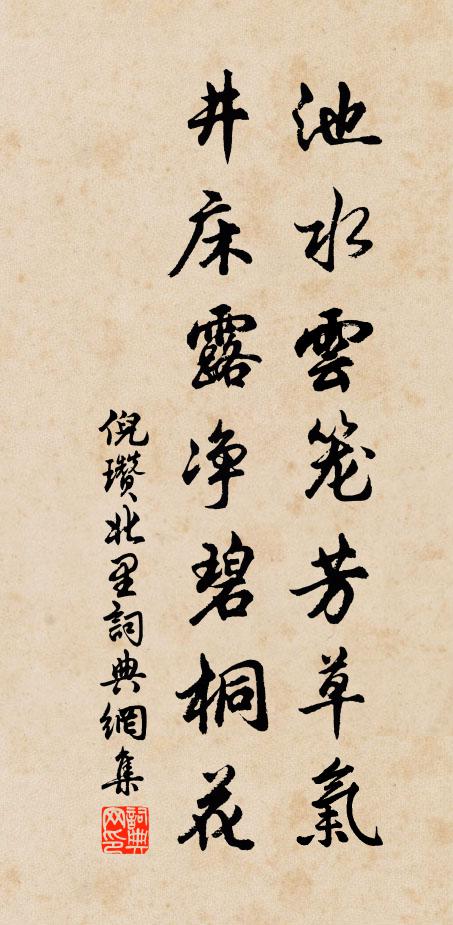 池水雲笼芳草氣
井床露净碧桐花
倪瓚北里詞典網集
詞典網印